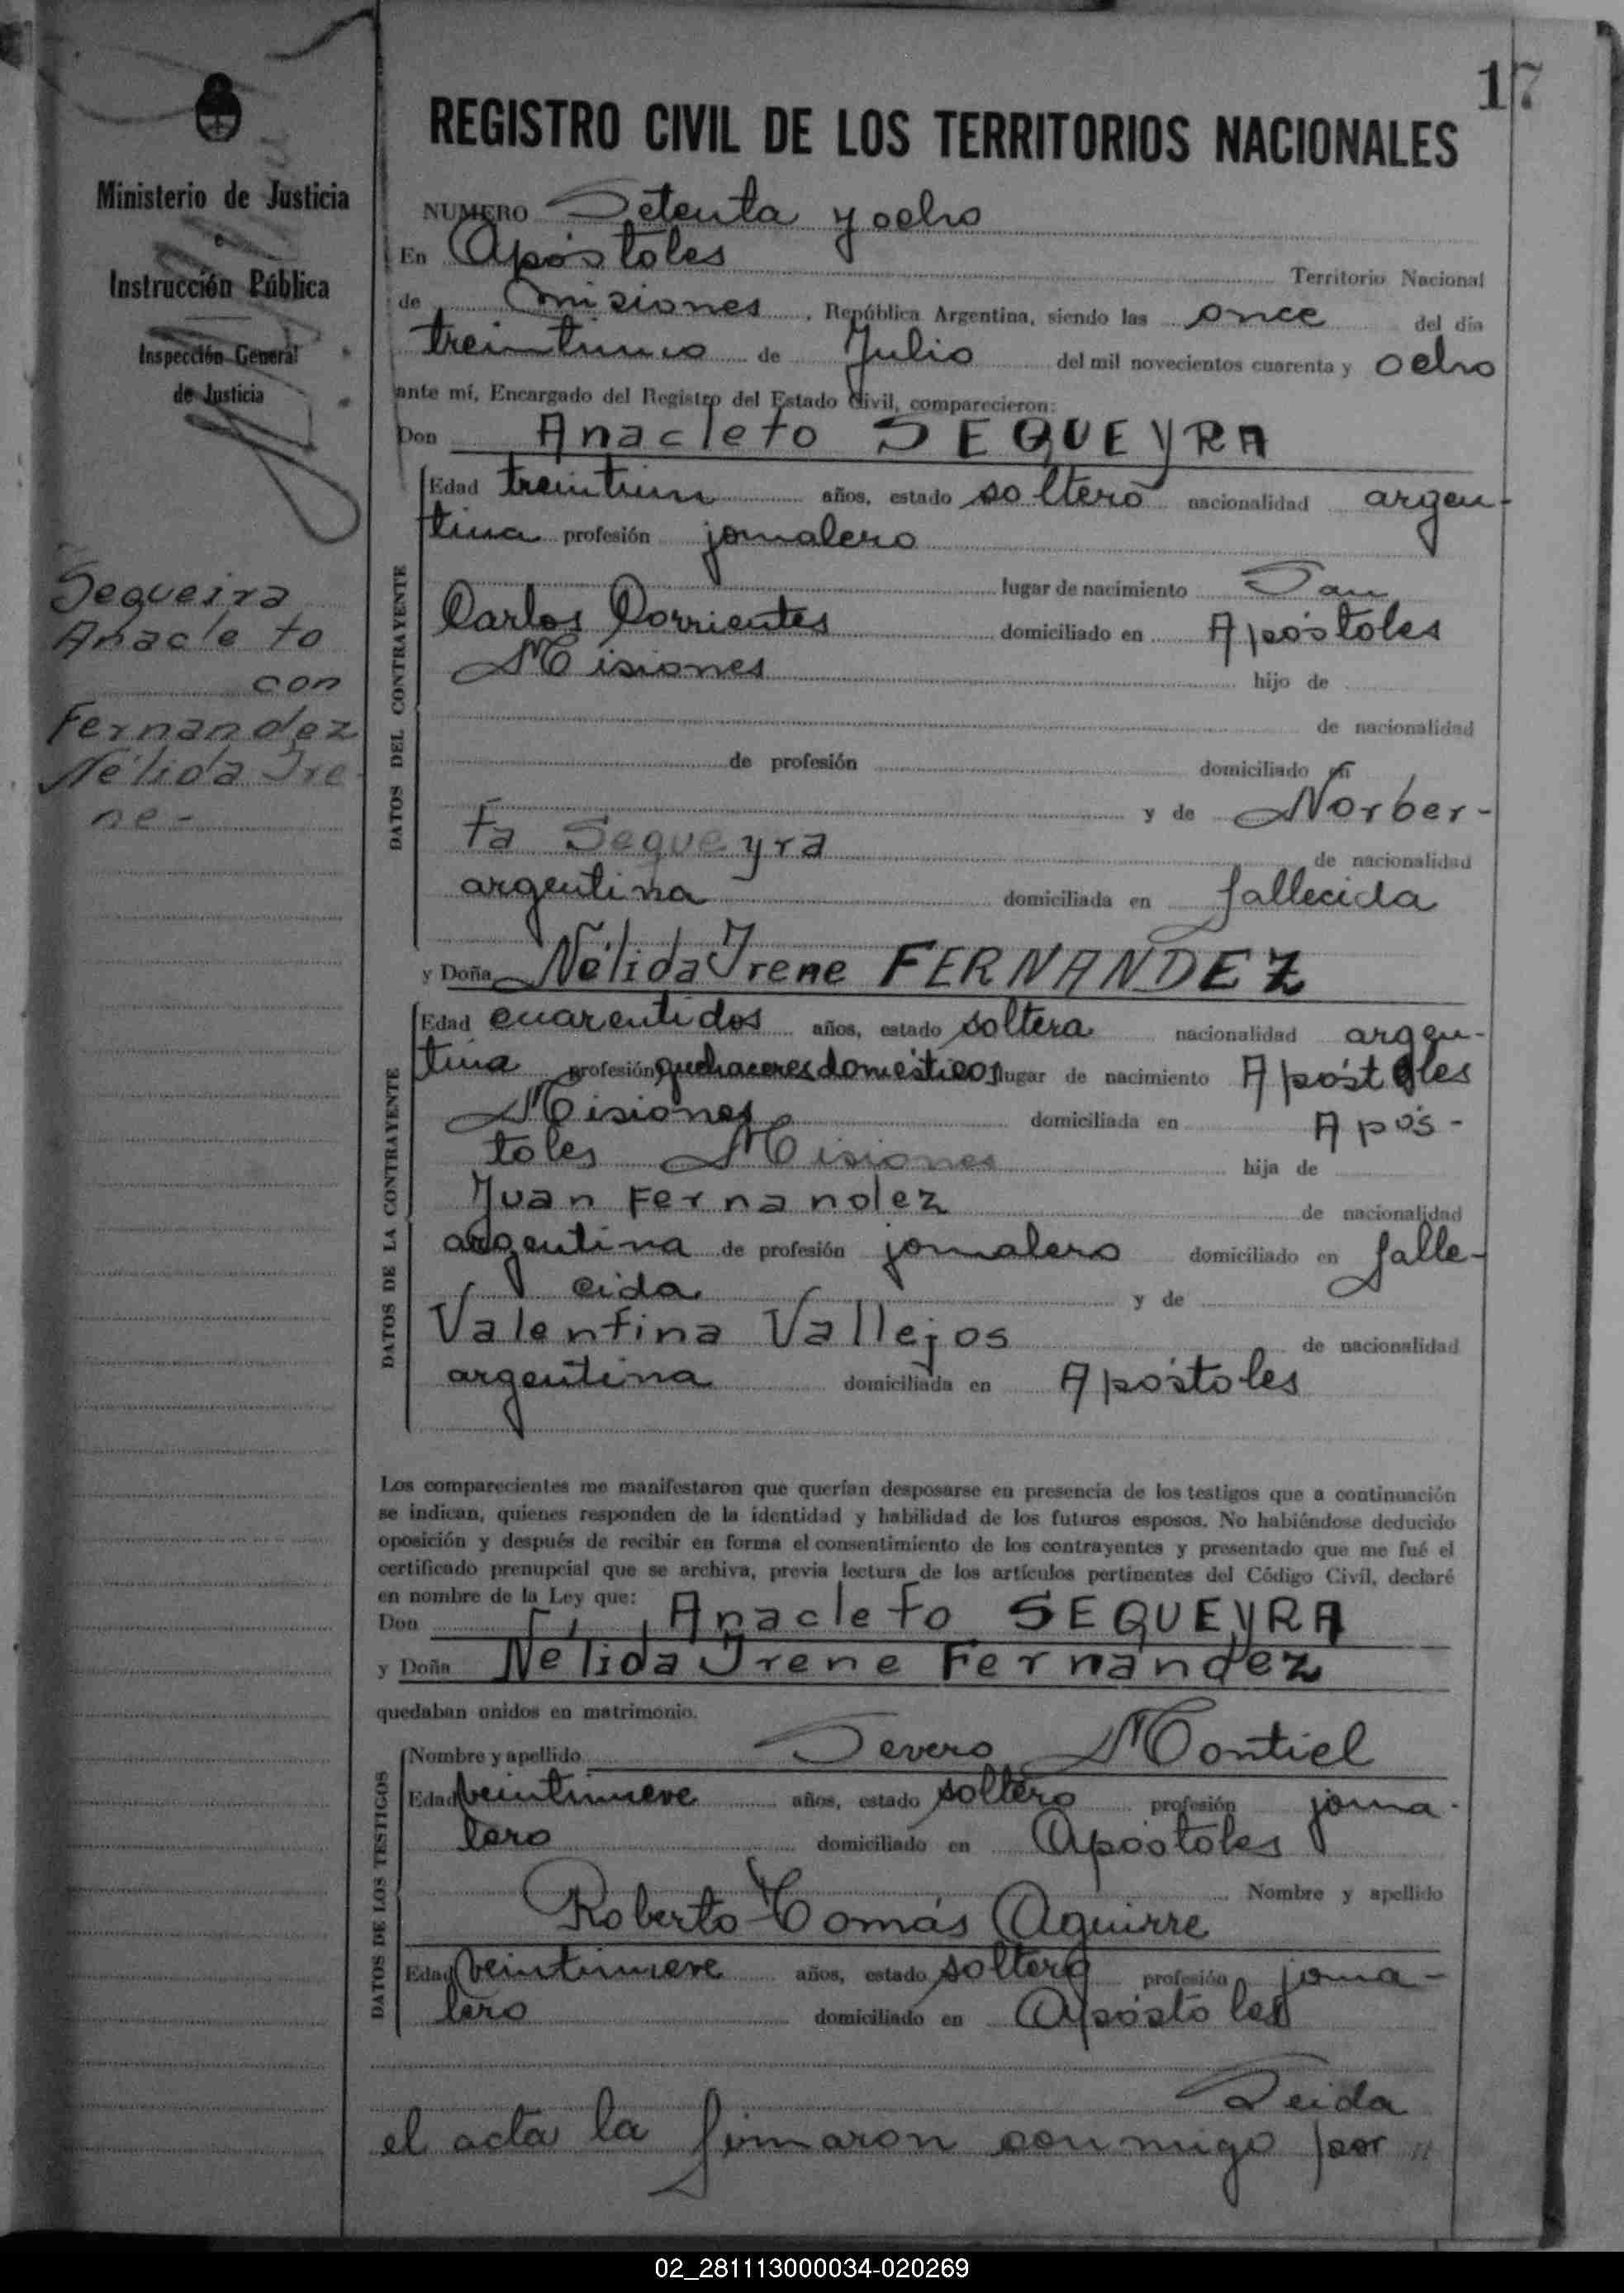 17
REGISTRO CIVIL DE LOS TERRITORIOS NACIONALES
Ministerio de Justicia
e
Instrucción Pública
Inspección General
de Justicia
Sequeira
Anacleto
con
Fernandez
Nélida Ire
ne-
NUMERO Setenta y ocho
En Apóstoles Territorio Nacional
de Misiones, República Argentina, siendo las once del día
treintiuno de Julio del mil novecientos cuarenta y ocho
ante mí, Encargado del Registro del Estado Civil, comparecieron:
Don Anacleto SEQUEYRA
DATOS DEL CONTRAYENTE
Edad treintiun años, estado soltero nacionalidad argen-
tina profesión jornalero
lugar de nacimiento San
Carlos Corrientes domiciliado en Apóstoles
Misiones hijo de
de nacionalidad
de profesión domiciliado en
y de Norber-
ta Sequeyra de nacionalidad
argentina domiciliada en fallecida
y Doña Nélida Irene FERNANDEZ
DATOS DE LA CONTRAYENTE
Edad cuarentidos años, estado soltera nacionalidad argen-
tina profesión quehaceres domésticos lugar de nacimiento Apóstoles
Misiones domiciliada en Após-
toles Misiones hija de
Juan Fernandez de nacionalidad
argentina de profesión jornalero domiciliado en falle-
cida y de
Valentina Vallejos de nacionalidad
argentina domiciliada en Apóstoles
Los comparecientes me manifestaron que querían desposarse en presencia de los testigos que a continuación
se indican, quienes responden de la identidad y habilidad de los futuros esposos. No habiéndose deducido
oposición y después de recibir en forma el consentimiento de los contrayentes y presentado que me fué el
certificado prenupcial que se archiva, previa lectura de los artículos pertinentes del Código Civil, declaré
en nombre de la Ley que:
Don Anacleto SEQUEYRA
y Doña Nélida Irene Fernandez
quedaban unidos en matrimonio.
DATOS DE LOS TESTIGOS
Nombre y apellido Severo Montiel
Edad veintinueve años, estado soltero profesión jorna-
lero domiciliado en Apóstoles
Nombre y apellido
Roberto Tomás Aguirre
Edad veintinueve años, estado soltero profesión jorna-
lero domiciliado en Apóstoles
Leida
el acta la firmaron conmigo por
02_281113000034-020269